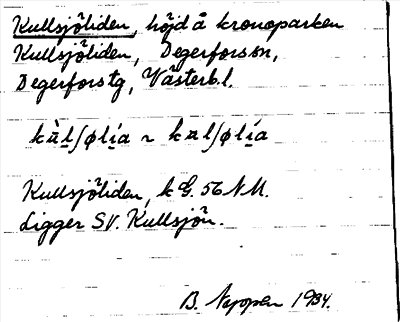 Kullsjöliden, höjd å kronoparken
Kullsjöliden, Degerfors sn,
Degerfors tg, Västerb. l.
kùl ʃølía ~ kul ʃølía
Kullsjöliden, k G. 56 NM.
Ligger SV. Kullsjön.
B. 1934.